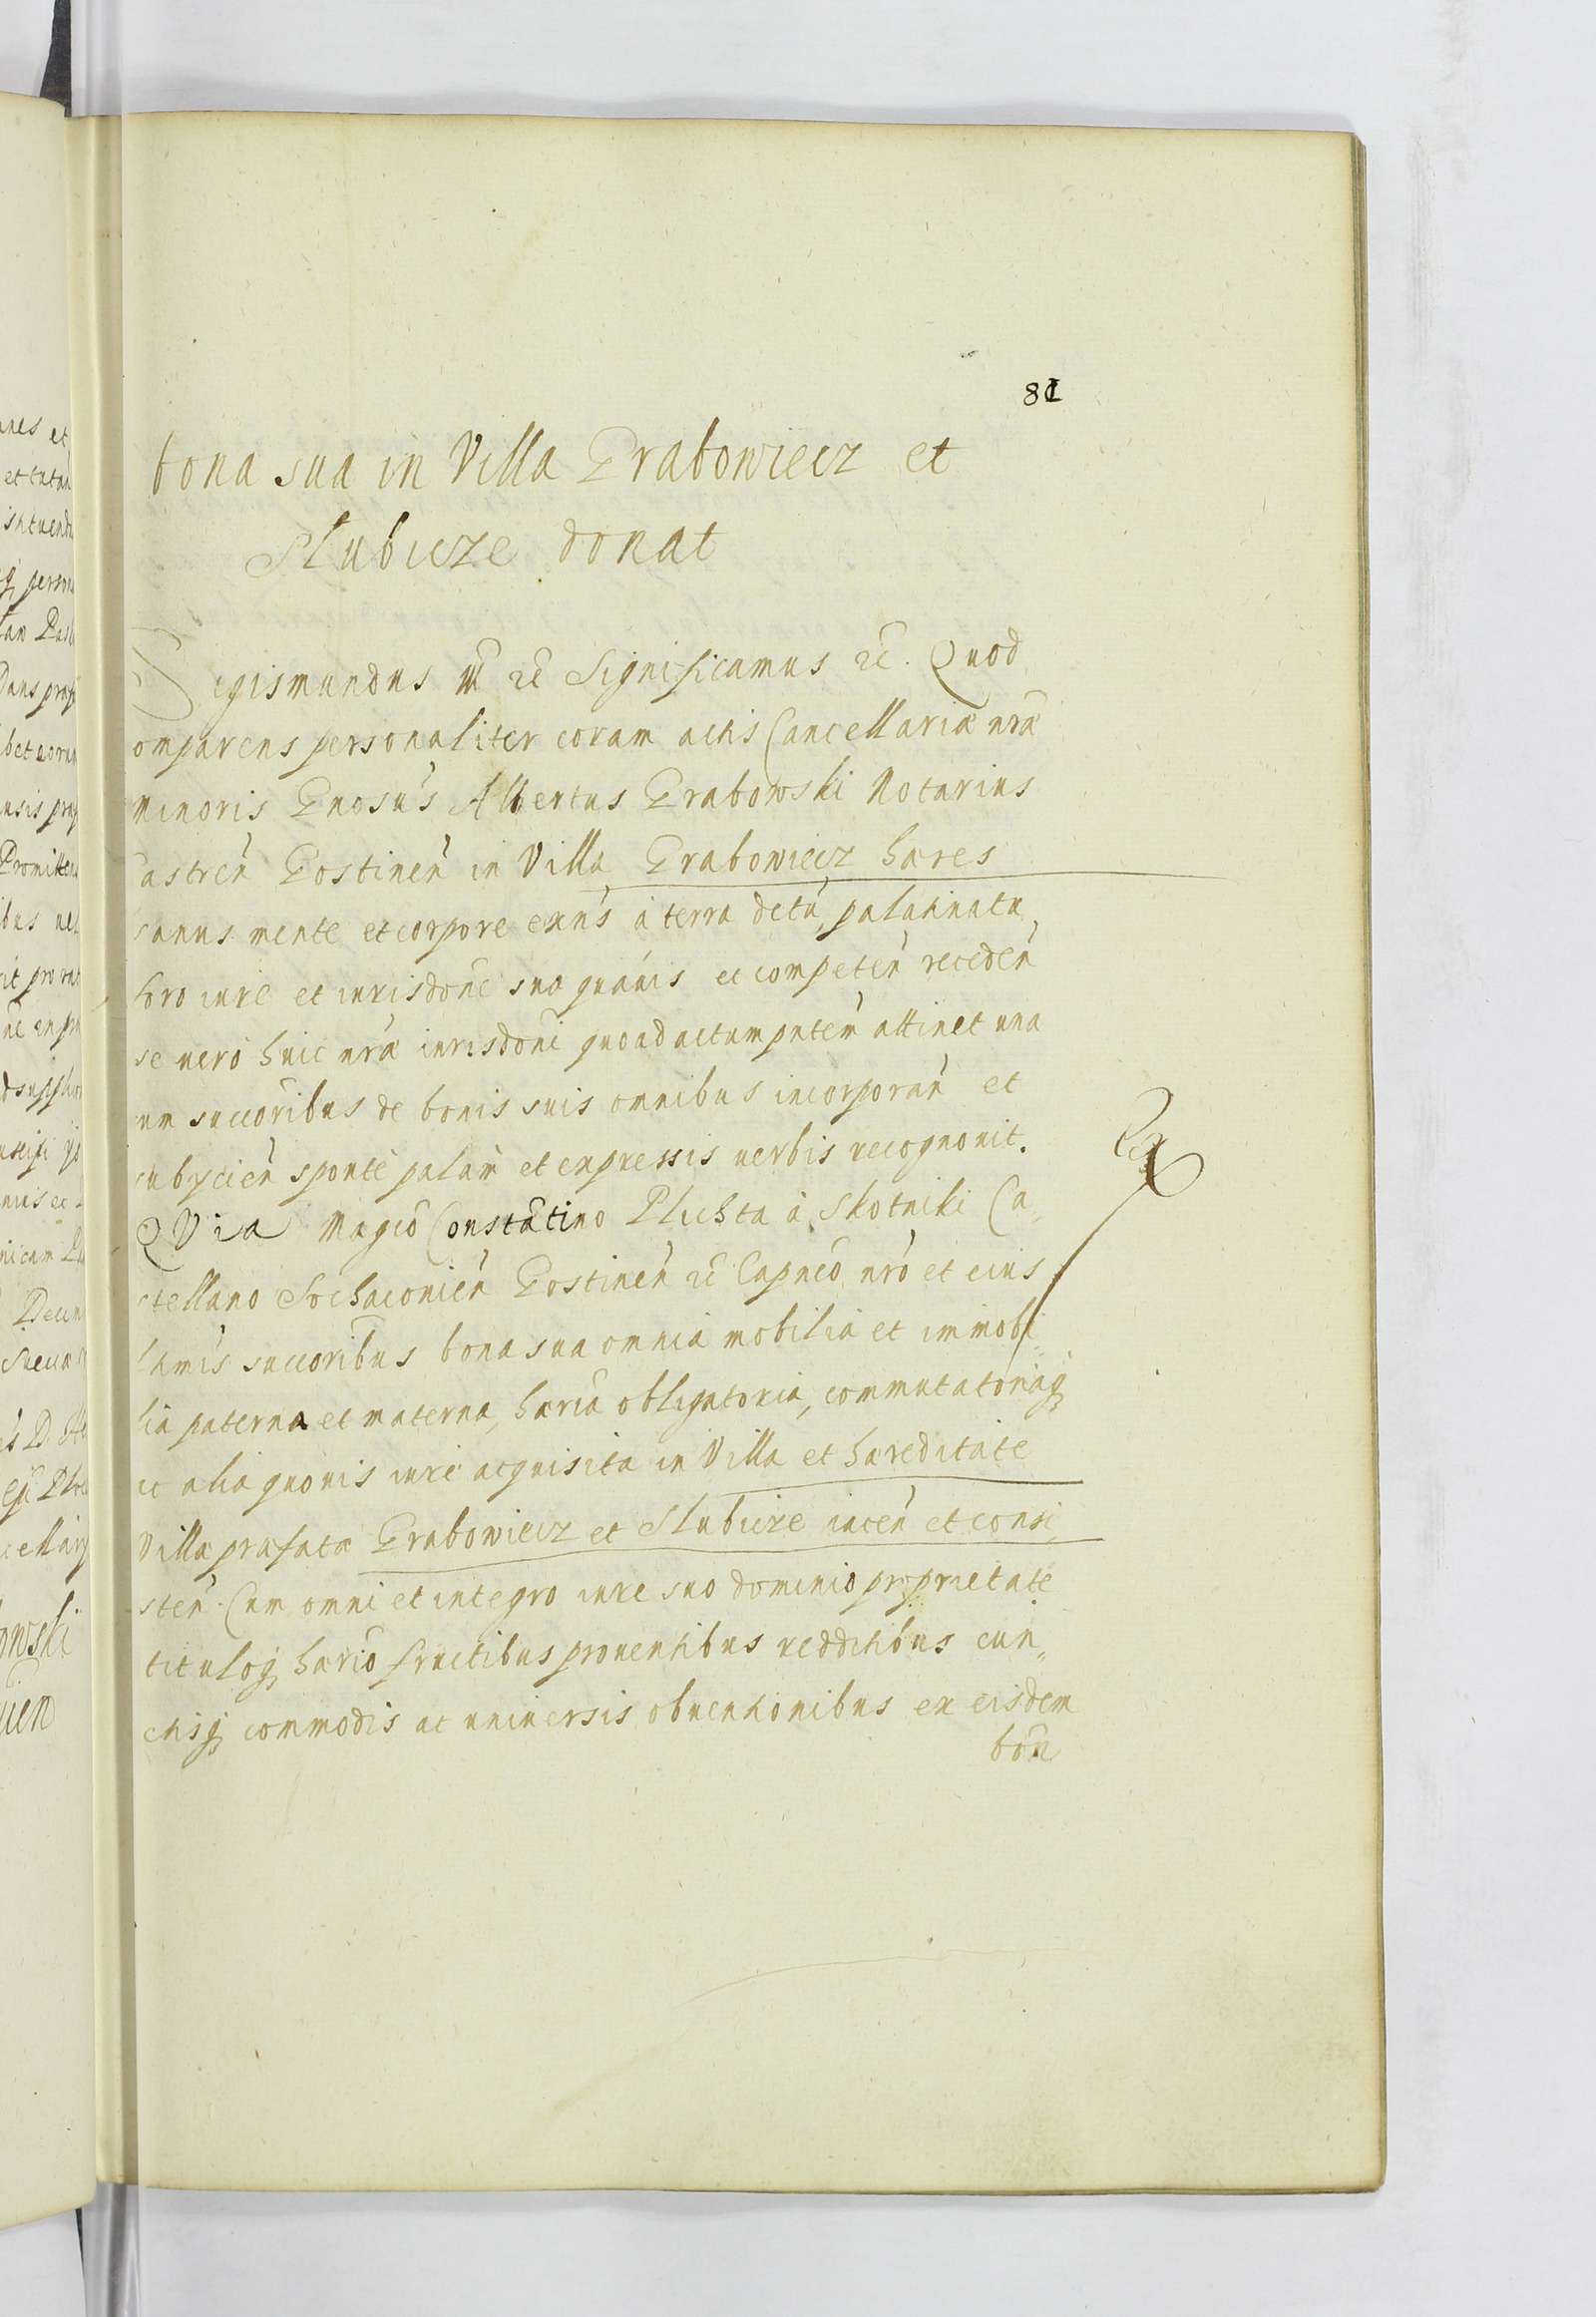 81
bona sua in Villa Grabowiecz et
Slubicze donat
Sigismundus III rc̃ Significamus rc̃. Quod
omparens personaliter coram actis Cancellariæ nr̃æ
Minoris Gnosus Albertus Grabowski Notarius
Castren̄ Gostinen̄ in Villa Grabowiecz hæres
sanus mente et corpore exn̄s à terra dẽta, palatinatu
foro iure et iurisdõne sua quauis ec competen̄ receden̄
se uero huic nr̃æ iurisdõni quoad actum pn̄tem attinet una
cum succõribus de bonis suis omnibus incorporan̄ et
subycien̄ sponte palam et expressis uerbis recognouit.
QVia Magco Constãtino Plichta à Skotniki Ca„
stellano Sochaconien̄ Gostinen̄ rc̃ Capneo nr̃o et eius
ltimis succõribus bona sua omnia mobilia et immobi„
lia paterna et materna, hæria obligatoria, commutatoriaq,
ec alia quouis iure acquisita in Villa et hæreditate
Villæ præfatæ Grabowiecz et Slubicze iacen̄ et consi„
sten̄. Cum omni et integro iure suo dominio proprietate
tituloq, hærio fructibus prouentibus redditibus cun„
ctisq, commodis ac uniuersis obuentionibus ex eisdem
bon